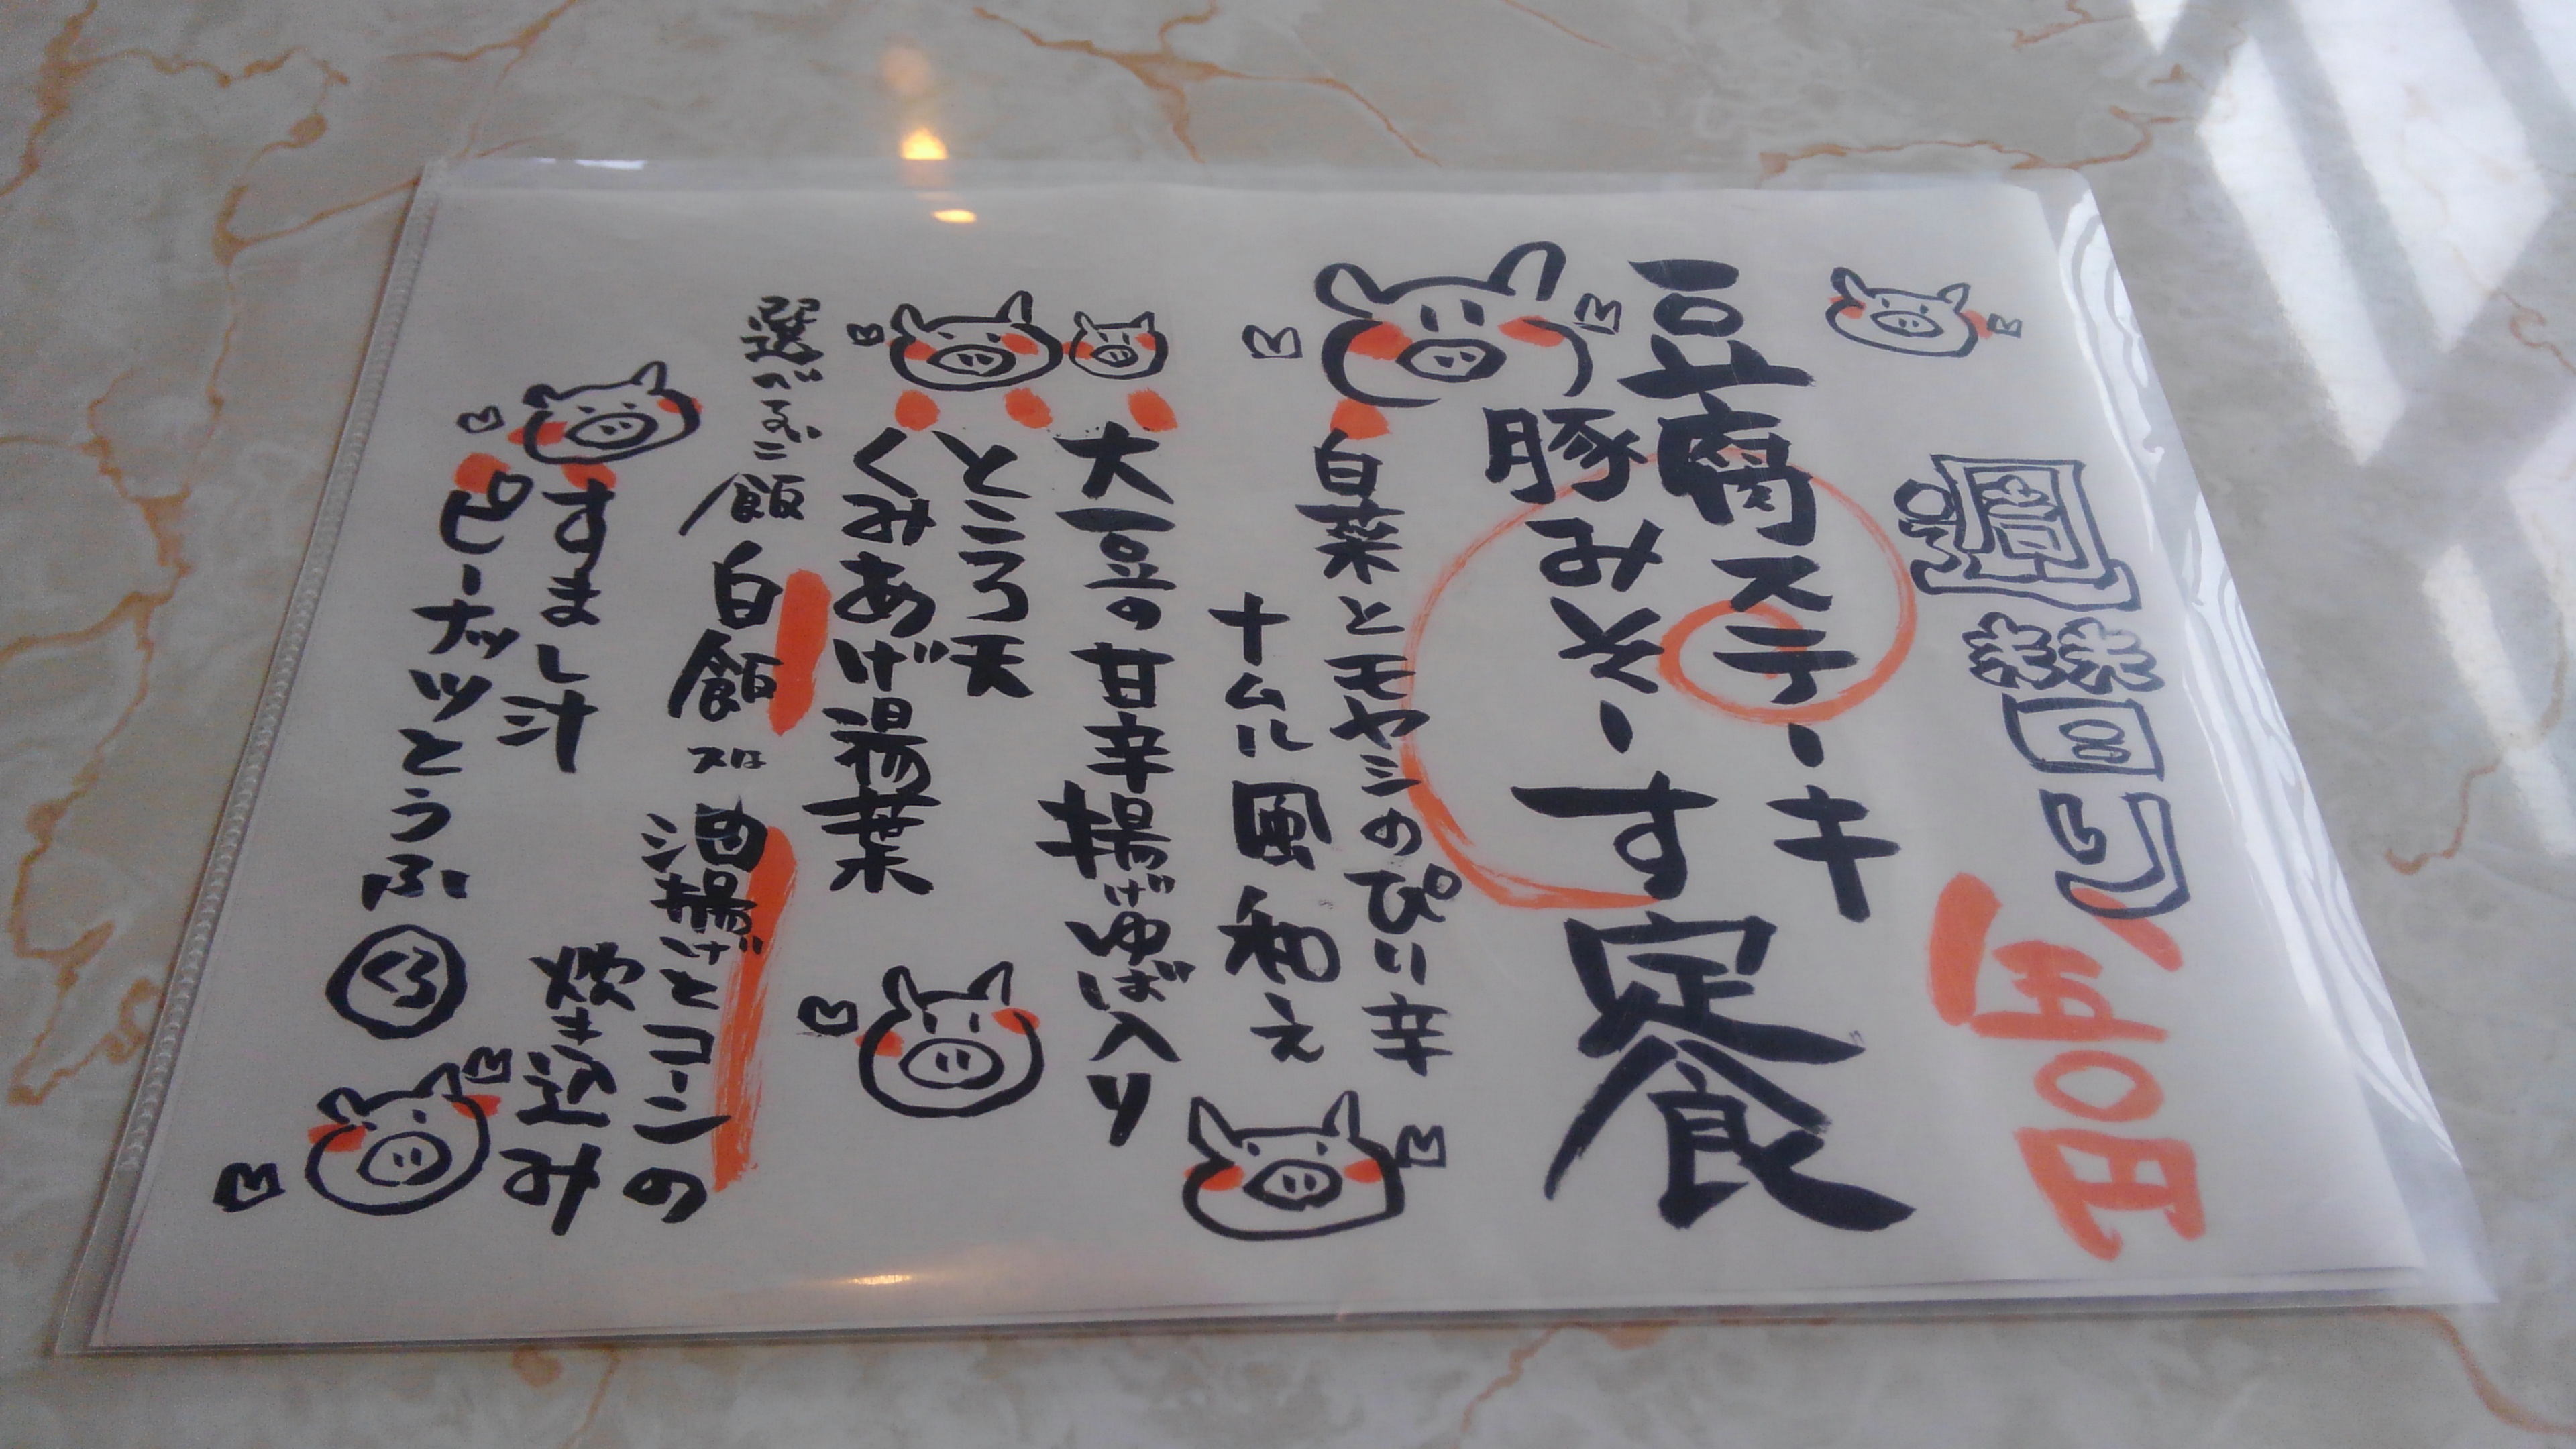 週替り
八五〇円
豆腐ステーキ
豚みそーす定食
白菜とモヤシのぴり辛
ナムル風和え
大豆の甘辛揚げゆば入り
ところ天
くみあげ湯葉
選べるご飯
白飯 又は 油揚げとコーンの
炊き込み
すまし汁
ピーナッツとうふ